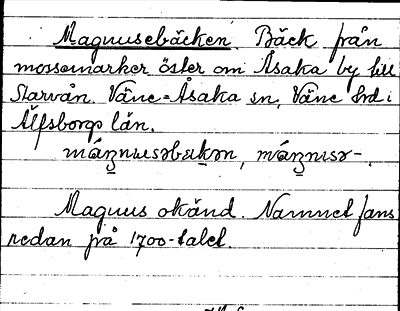 Magnusebäcken. Bäck från
mossemarker öster om Åsaka by till
Starvån. Väne-Åsaka sn, Väne hd i
Älfsborgs län.
Magnus okänd. Namnet fans
redan på 1700-talet.